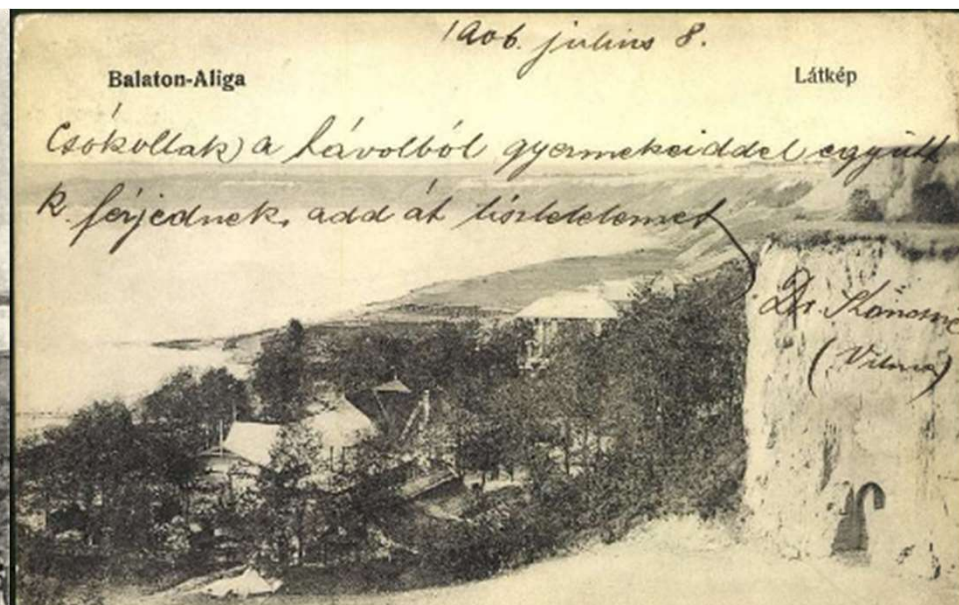 1906. julius 8.
Balaton-Aliga
Látkép
Csókollak a távolból gyermekeiddel együtt
k. férjednek add át tiszteletemet
Dr.
(Vilma)